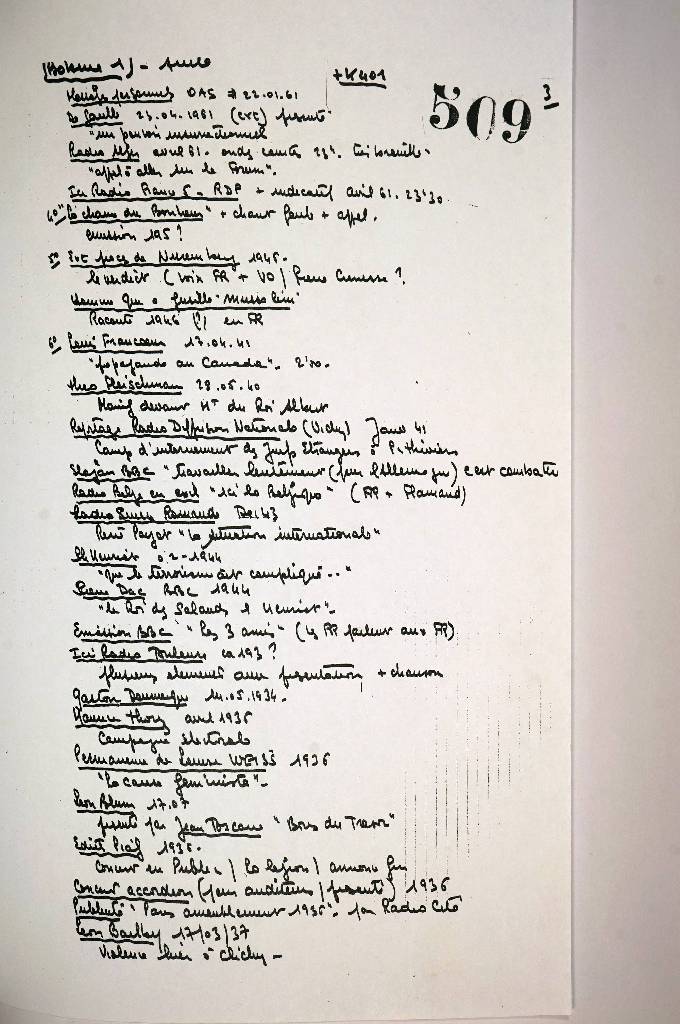 + K401
509 3
OAS 22.01.61
De Gaulle 23.04.1961 (ext) présente
"un pouvoir insurrectionnel
Radio Alger avril 61. ondes courtes 23h.
"appel à aller sur le Forum".
Ici Radio France 5. RDF + indicatif avril 61. 23h30
40" "la chanson du Bonheur" + chant + appel.
émission 195 ?
50 Ext procès de Nuremberg 1946.
le verdict (voix FR + VO) ?
Homme qui a fusillé "Mussolini"
Raconte 1946 (?) en FR
60 Francoeur 17.04.41
"propagande au Canada". 2'30.
Theo Fleischman 28.05.40
devant Mt du Roi Albert
Reportage Radio Diffusion Nationale (Vichy) 41
Camp d'internement des Juifs Etrangers à Pithiviers
Slogan BBC "travailler lentement (pour l'Allemagne) c'est combattre
Radio Belge en exil "ici la Belgique" (FR + Flamand)
Radio Suisse Romande 43
René Payot "la situation internationale"
Ph Henriot 02-1944
"que le terrorisme est compliqué..."
Pierre Dac BBC 1944
"le Roi des Salauds Henriot".
Emission BBC "les 3 amis" (les FR parlent aux FR)
Ici Radio Toulouse ca 193?
plusieurs éléments avec présentation + chanson
Gaston Doumergue 14.05.1934.
Maurice Thorez avril 1936
Campagne électorale
Permanence de Louise WEISS 1936
"la cause féministe".
Léon Blum 17.07
présenté par Jean Toscane "Bois du Travail"
Edith Piaf 1936.
Concours en Public / la légion / annonce fin
Concours accordéon (pour auditeurs / présenté) 1936
Publicité "Paris ameublement 1936". par Radio Cité
Léon Bailby 17/03/37
Violence hier à Clichy -